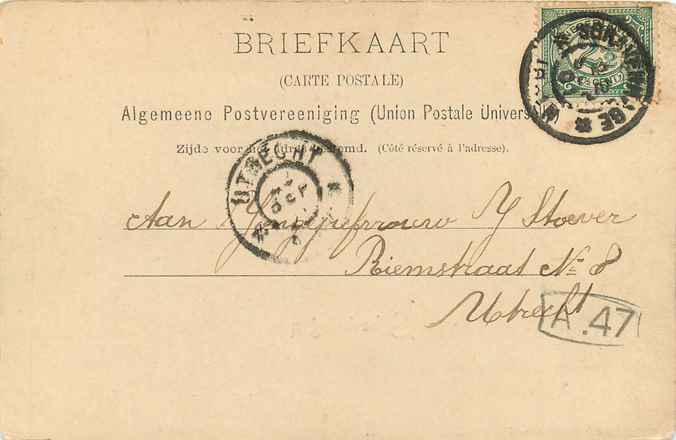 BRIEFKAART
(CARTE POSTALE)
Algemeene Postvereeniging (Union Postale Univers
Zijde voor het adres bestemd. (Côté réservé à l'adresse).
UTRECHT
Aan Jongejufvrouw Y Stoever
Riemstraat No 8
Utrecht
A.47